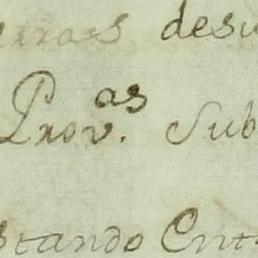 desu
Prov.as Sub
stando Ent